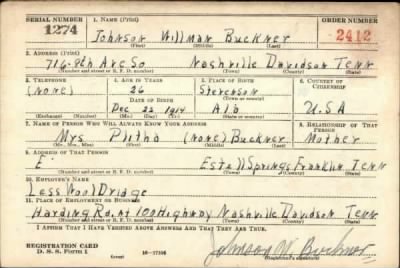 SERIAL NUMBER 1. NAME (Print) ORDER NUMBER
1274 Johnson Willman Buckner 2412
(First) (Middle) (Last)
2. ADDRESS (Print)
716-8th Ave So Nashville Davidson Tenn
(Number and street or R. F. D. number) (Town) (County) (State)
3. TELEPHONE 4. AGE IN YEARS 5. PLACE OF BIRTH 6. COUNTRY OF CITIZENSHIP
(none) 26 Stevenson
DATE OF BIRTH (Town or county)
Dec 22 1914 Ala U.S.A
(Exchange) (Number) (Mo.) (Day) (Yr.) (State or country)
7. NAME OF PERSON WHO WILL ALWAYS KNOW YOUR ADDRESS 8. RELATIONSHIP OF THAT PERSON
Mrs (none) Buckner Mother
(Mr., Mrs., Miss) (First) (Middle) (Last)
9. ADDRESS OF THAT PERSON
E Estell Springs Franklin Tenn
(Number and street or R. F. D. number) (Town) (County) (State)
10. EMPLOYER'S NAME
Less Wool Dridge
11. PLACE OF EMPLOYMENT OR BUSINESS
Harding Rd. At 100 Highway Nashville Davidson Tenn
(Number and street or R. F. D. number) (Town) (County) (State)
I AFFIRM THAT I HAVE VERIFIED ABOVE ANSWERS AND THAT THEY ARE TRUE.
REGISTRATION CARD
D. S. S. Form 1 (over) 16-17105 Johnson W. Buckner
(Registrant's signature)